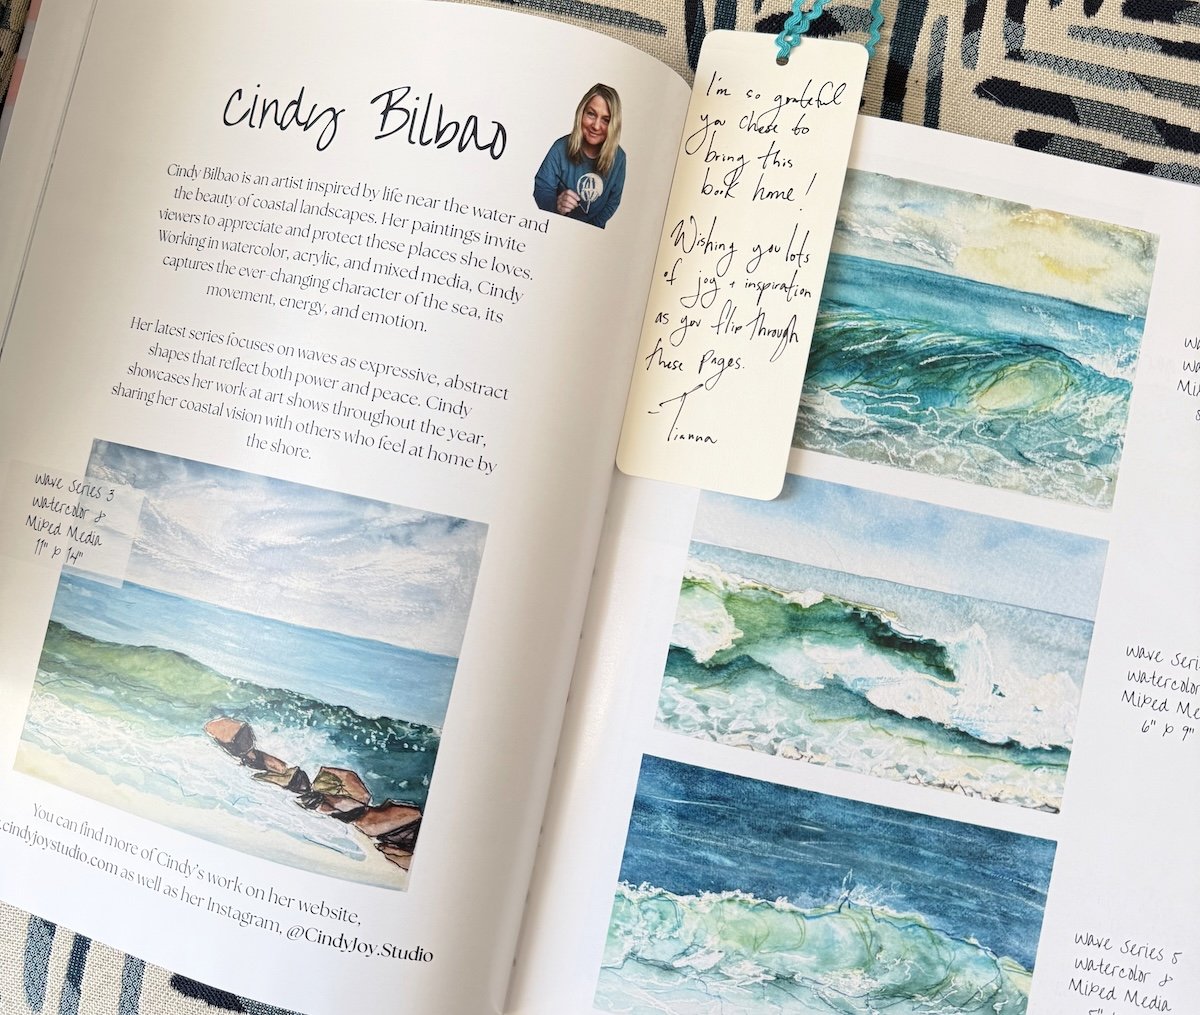 Cindy Bilbao
Cindy Bilbao is an artist inspired by life near the water and
the beauty of coastal landscapes. Her paintings invite
viewers to appreciate and protect these places she loves.
Working in watercolor, acrylic, and mixed media, Cindy
captures the ever-changing character of the sea, its
movement, energy, and emotion.
Her latest series focuses on waves as expressive, abstract
shapes that reflect both power and peace. Cindy
showcases her work at art shows throughout the year,
sharing her coastal vision with others who feel at home by
the shore.
Wave Series 3
Watercolor &
Mixed Media
11" x 14"
You can find more of Cindy's work on her website,
.cindyjoystudio.com as well as her Instagram, @CindyJoy.Studio
I'm so grateful
you chose to
bring this
book home!
Wishing you lots
of joy + inspiration
as you flip through
these pages.
-Tianna
Wave
Watercolor
Mixed
6" x 9"
Wave Series 5
Watercolor &
Mixed Media